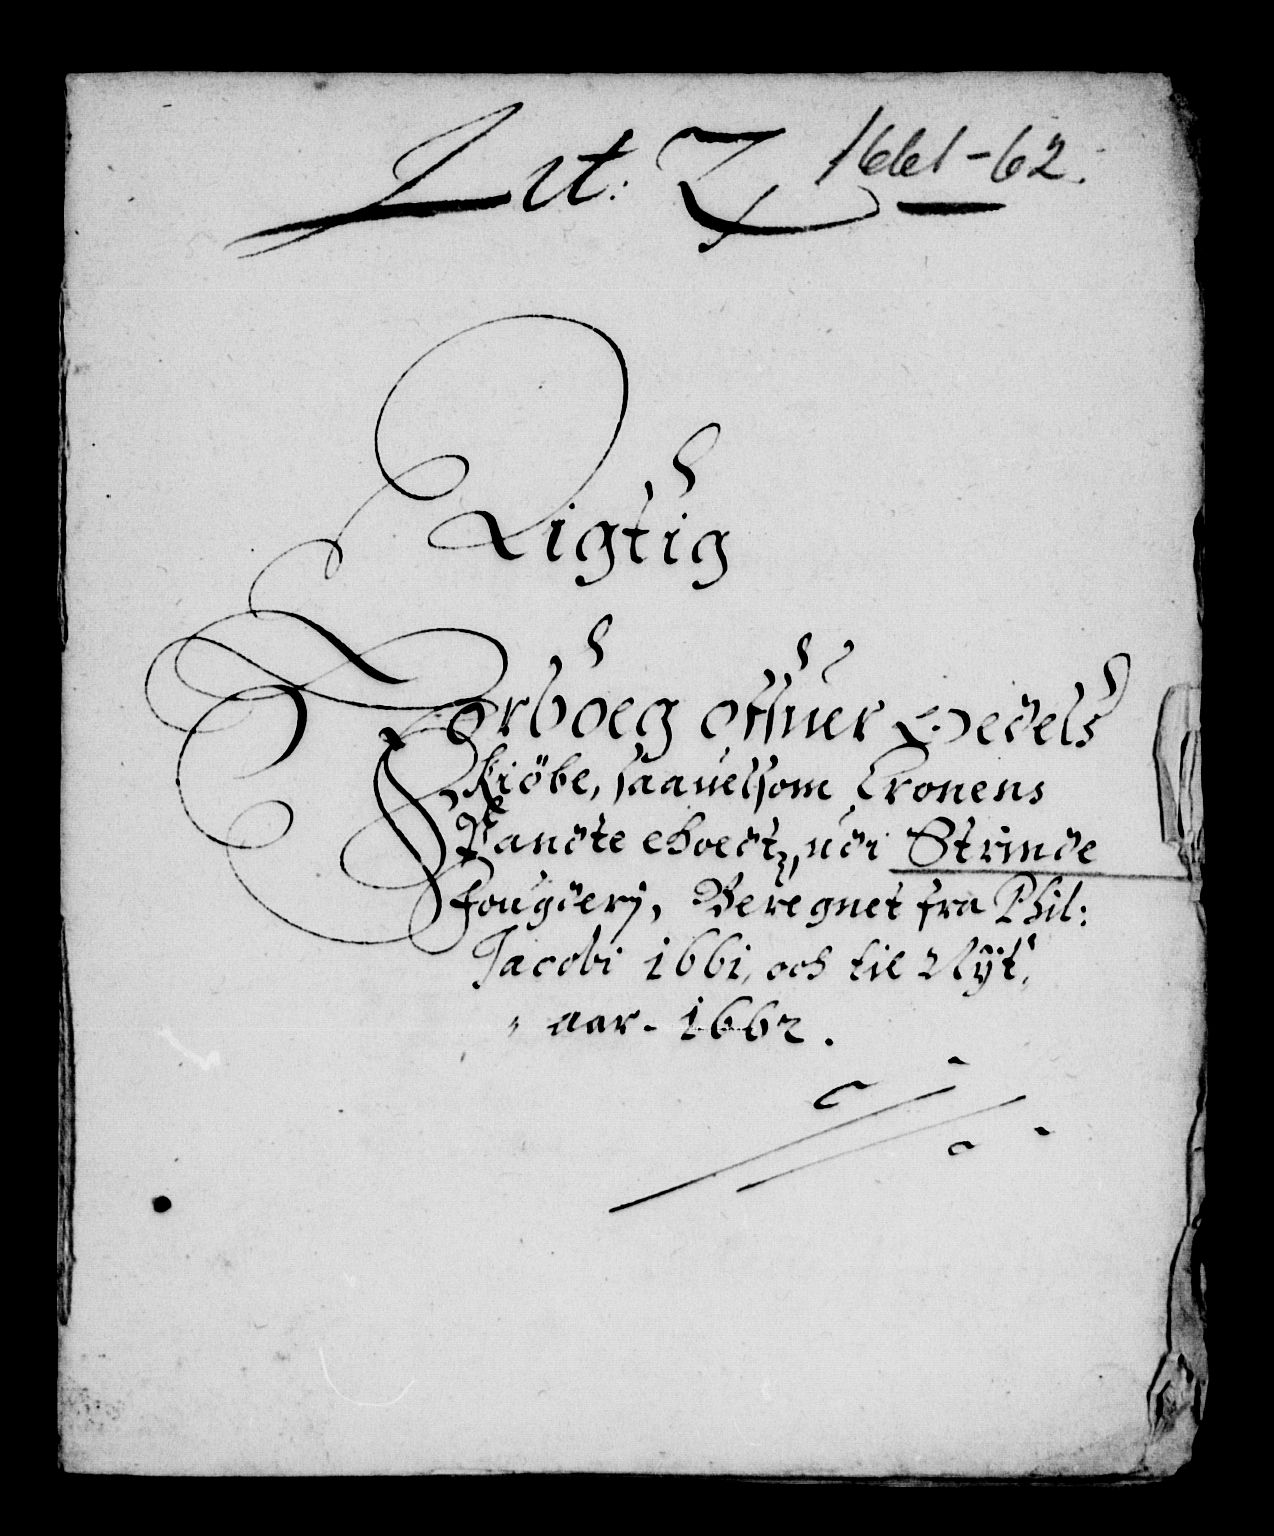 Lit: Z 1661-62.
Rigtig
Jorboeg offuer Medels
Kiöbe, saauelsom Cronens
Pandte Goedtz, udi Strinde
Fougderj, Beregnet fra Phil:
Jacobi 1661, och til Nÿt
aar - 1662.